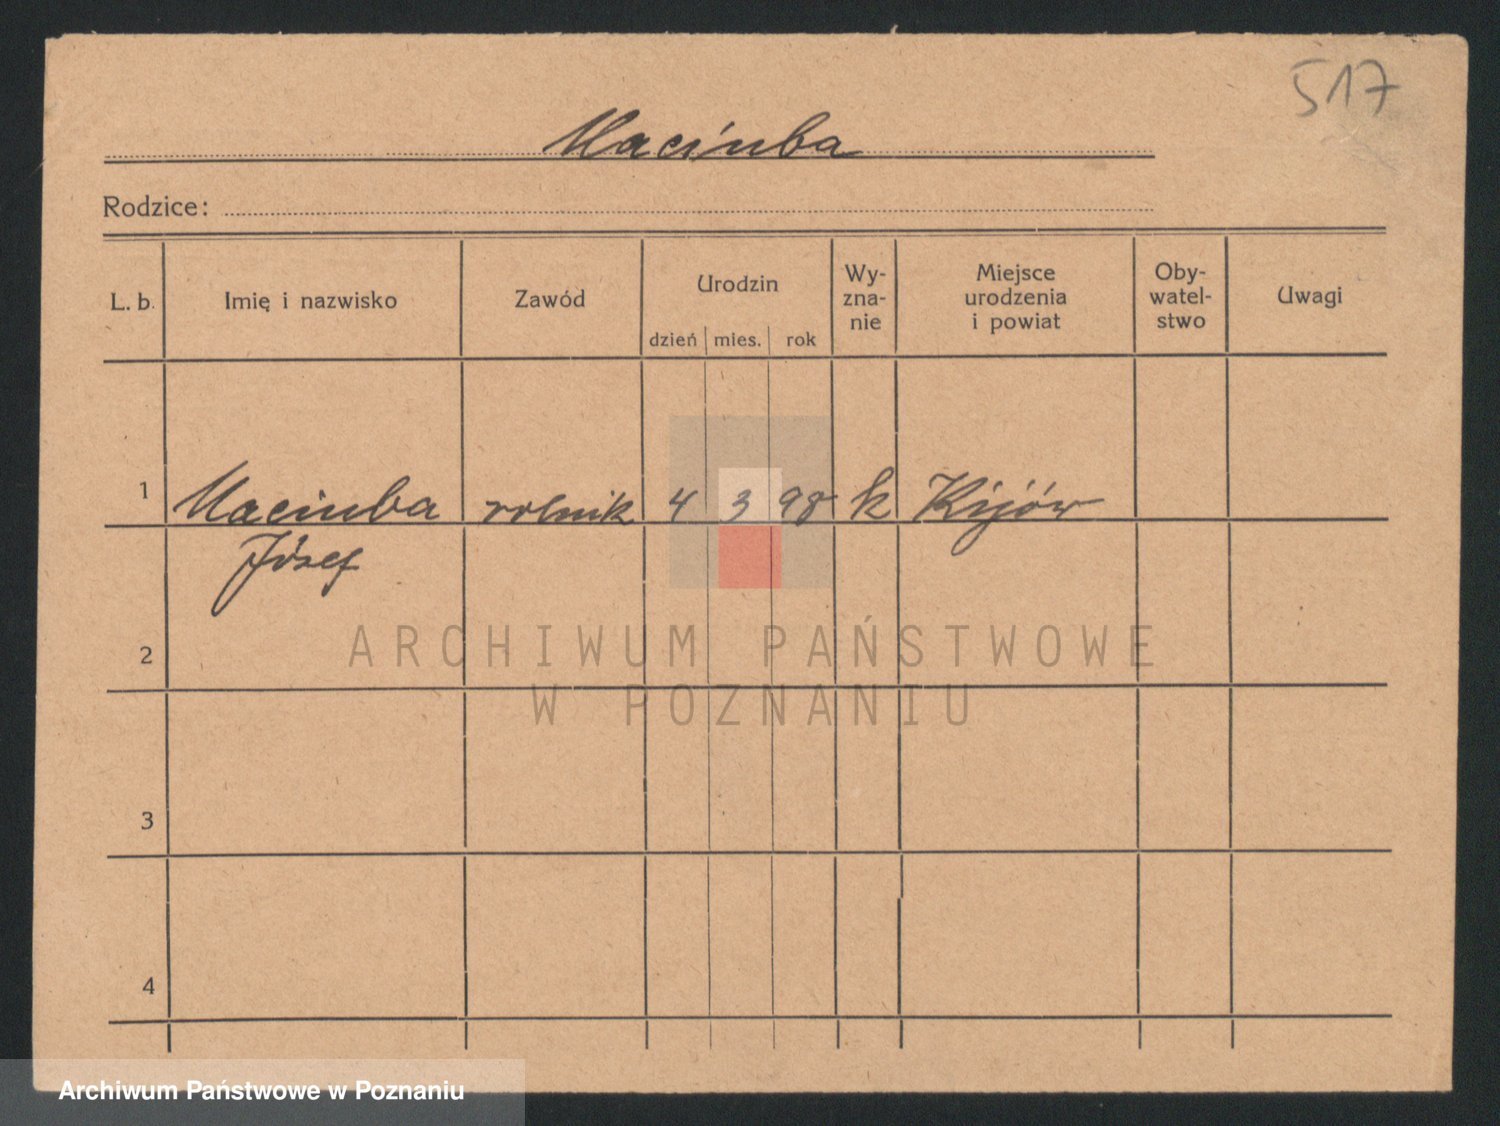 517
Maciuba
Rodzice:
L. b. Imię i nazwisko Zawód Urodzin dzień mies. rok Wy-zna-nie Miejsce urodzenia i powiat Oby-watel-stwo Uwagi
1 Maciuba rolnik 4 3 98 k Kijów
Józef
2
3
4
ARCHIWUM PAŃSTWOWE
W POZNANIU
Archiwum Państwowe w Poznaniu